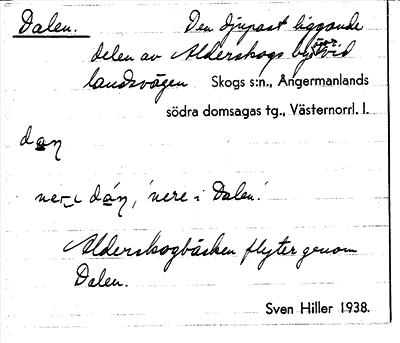 Dalen. Den djupast liggande
delen av Alderskogs by, vid
landsvägen Skogs s:n., Ångermanlands
södra domsagas tg., Västernorrl. l.
dan
nere i dán, 'nere i Dalen'.
Alderskogbäcken flyter genom
Dalen.
Sven Hiller 1938.